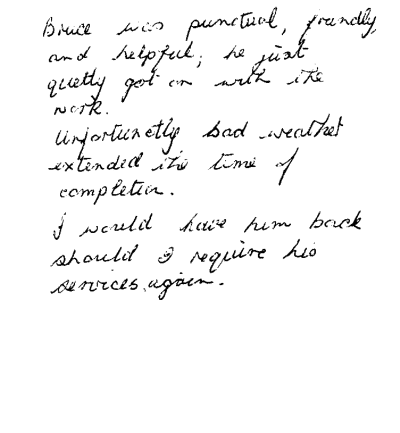 Bruce was punctual, friendly,
and helpful; he just
quietly got on with the
work.
Unfortunetly bad weather
extended the time of
completion.
I would have him back
should I require his
services again.